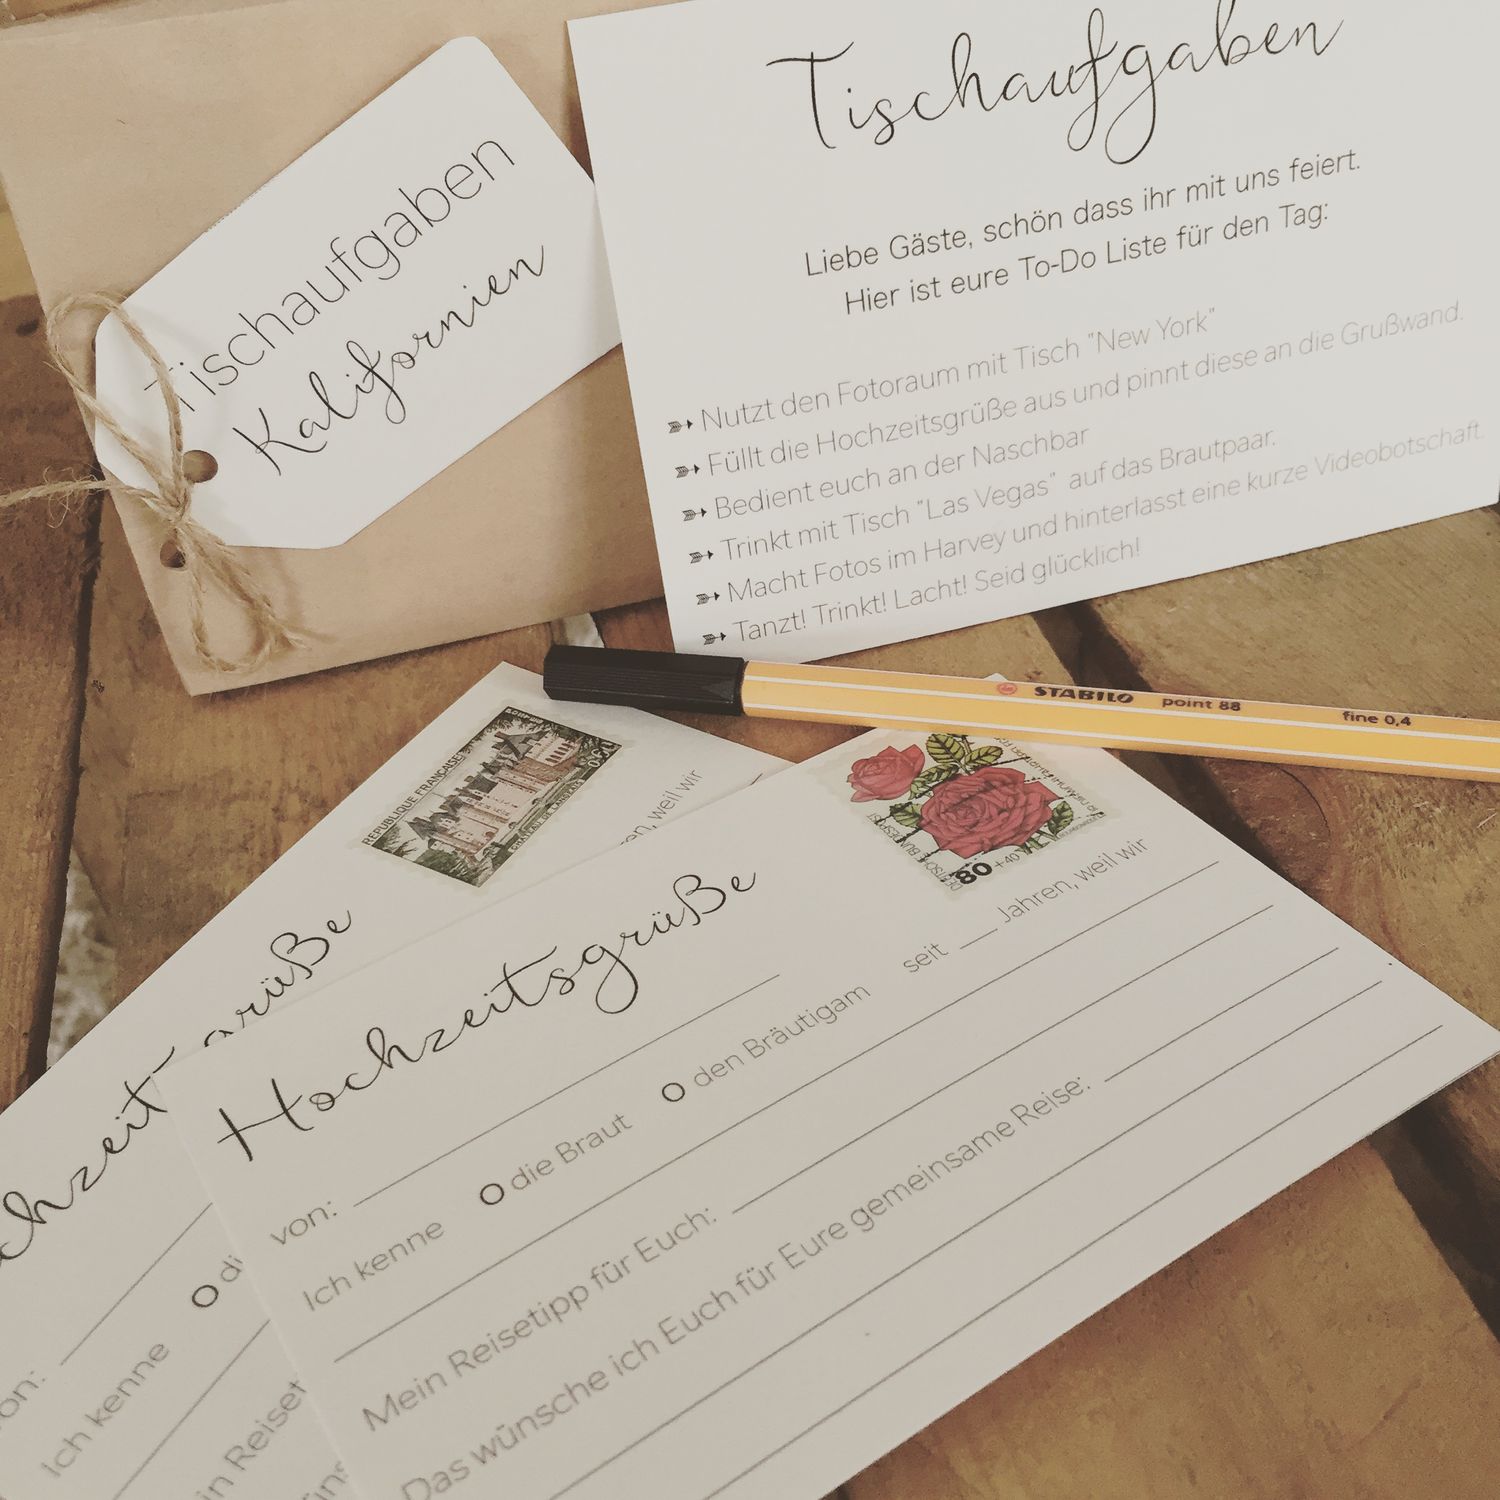 Tischaufgaben
Kalifornien
Tischaufgaben
Liebe Gäste, schön dass ihr mit uns feiert.
Hier ist eure To-Do Liste für den Tag:
Nutzt den Fotoraum mit Tisch "New York"
Füllt die Hochzeitsgrüße aus und pinnt diese an die Grußwand.
Bedient euch an der Naschbar
Trinkt mit Tisch "Las Vegas" auf das Brautpaar.
Macht Fotos im Harvey und hinterlasst eine kurze Videobotschaft.
Tanzt! Trinkt! Lacht! Seid glücklich!
STABILO point 88 fine 0,4
REPUBLIQUE FRANCAISE
weil wir
grüße
Ich kenne
DEUTSCHE BUNDESPOST
80 +40
Hochzeitsgrüße
von:
Ich kenne O die Braut O den Bräutigam seit ___ Jahren, weil wir
Mein Reisetipp für Euch:
Das wünsche ich Euch für Eure gemeinsame Reise: